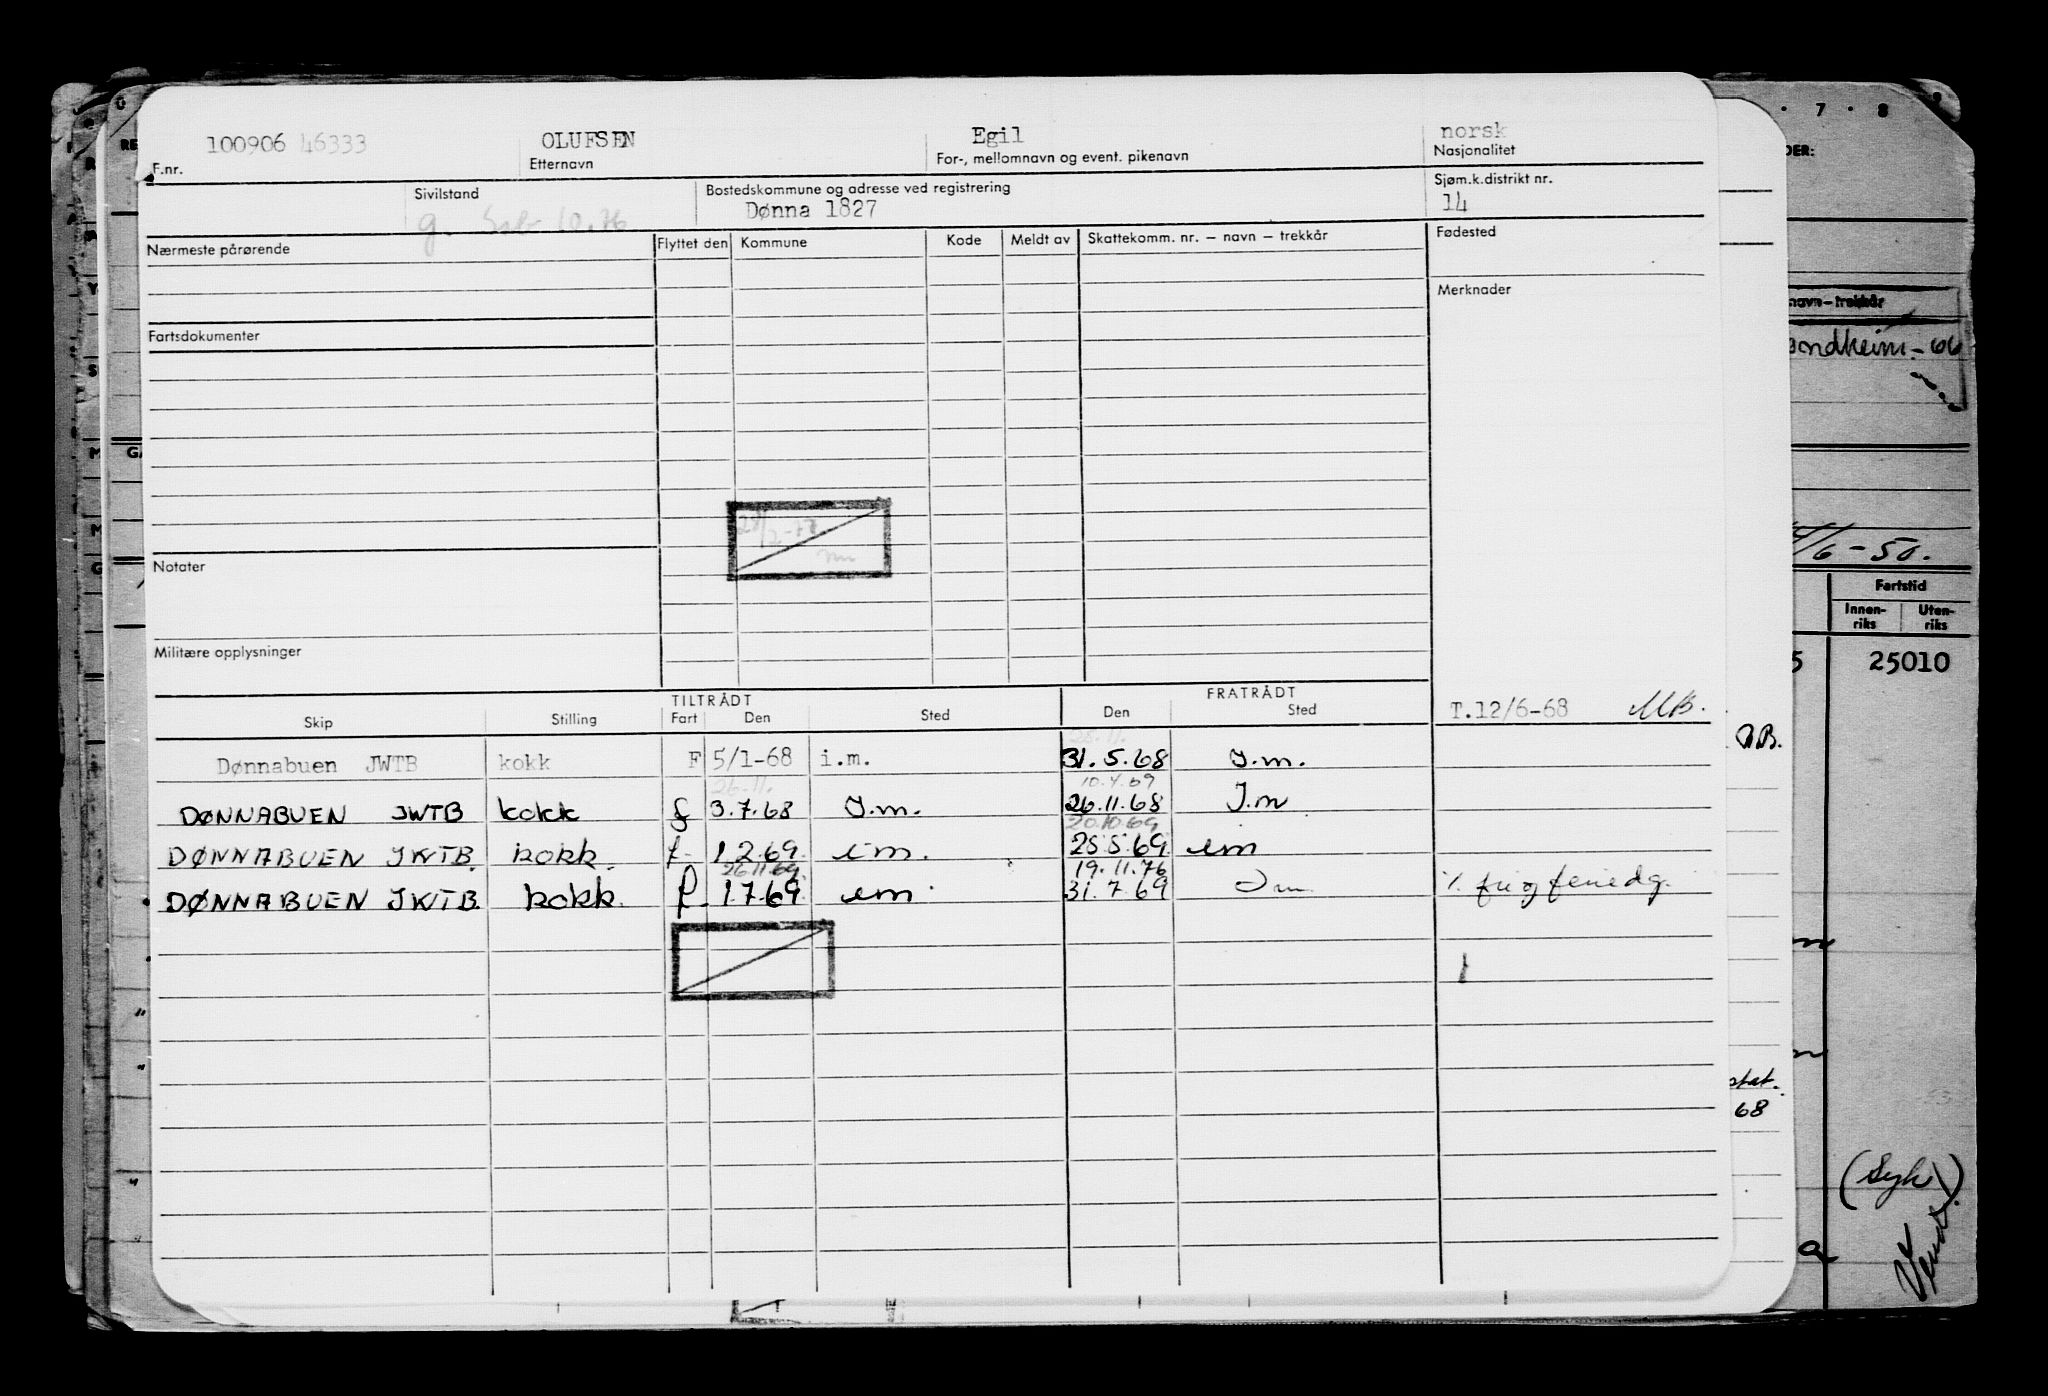 100906 46333 OLUFSEN Egil norsk
F.nr. Etternavn For-, mellomnavn og event. pikenavn Nasjonalitet
Sivilstand Bostedskommune og adresse ved registrering Sjøm.k.distrikt nr.
g. 10.76 Dønna 1827 14
Nærmeste pårørende Flyttet den Kommune Kode Meldt av Skattekomm. nr. – navn – trekkår Fødested
Merknader
Fartsdokumenter
Notater
Militære opplysninger
TILTRÅDT FRATRÅDT
Skip Stilling Fart Den Sted Den Sted T.12/6-68 MB.
Dønnabuen JWTB kokk F 5/1-68 i.m. 31.5.68 I.m.
26.11. 10.4.69
DØNNABUEN JWTB kokk f 3.7.68 I.m. 26.11.68 I.m
20.10.69
DØNNABUEN JWTB. kokk. f. 1.2.69. im. 28.5.69. im
26.11.69. 19.11.76
DØNNABUEN JWTB. kokk. f. 1.7.69. im 31.7.69 Im. % fri og feriedg.
7 8 9
DER:
navn – trekkår
ondheim - 66
/6-50.
Fartstid
Innen-riks Uten-riks
5 25010
68
(Syk)
Vend.